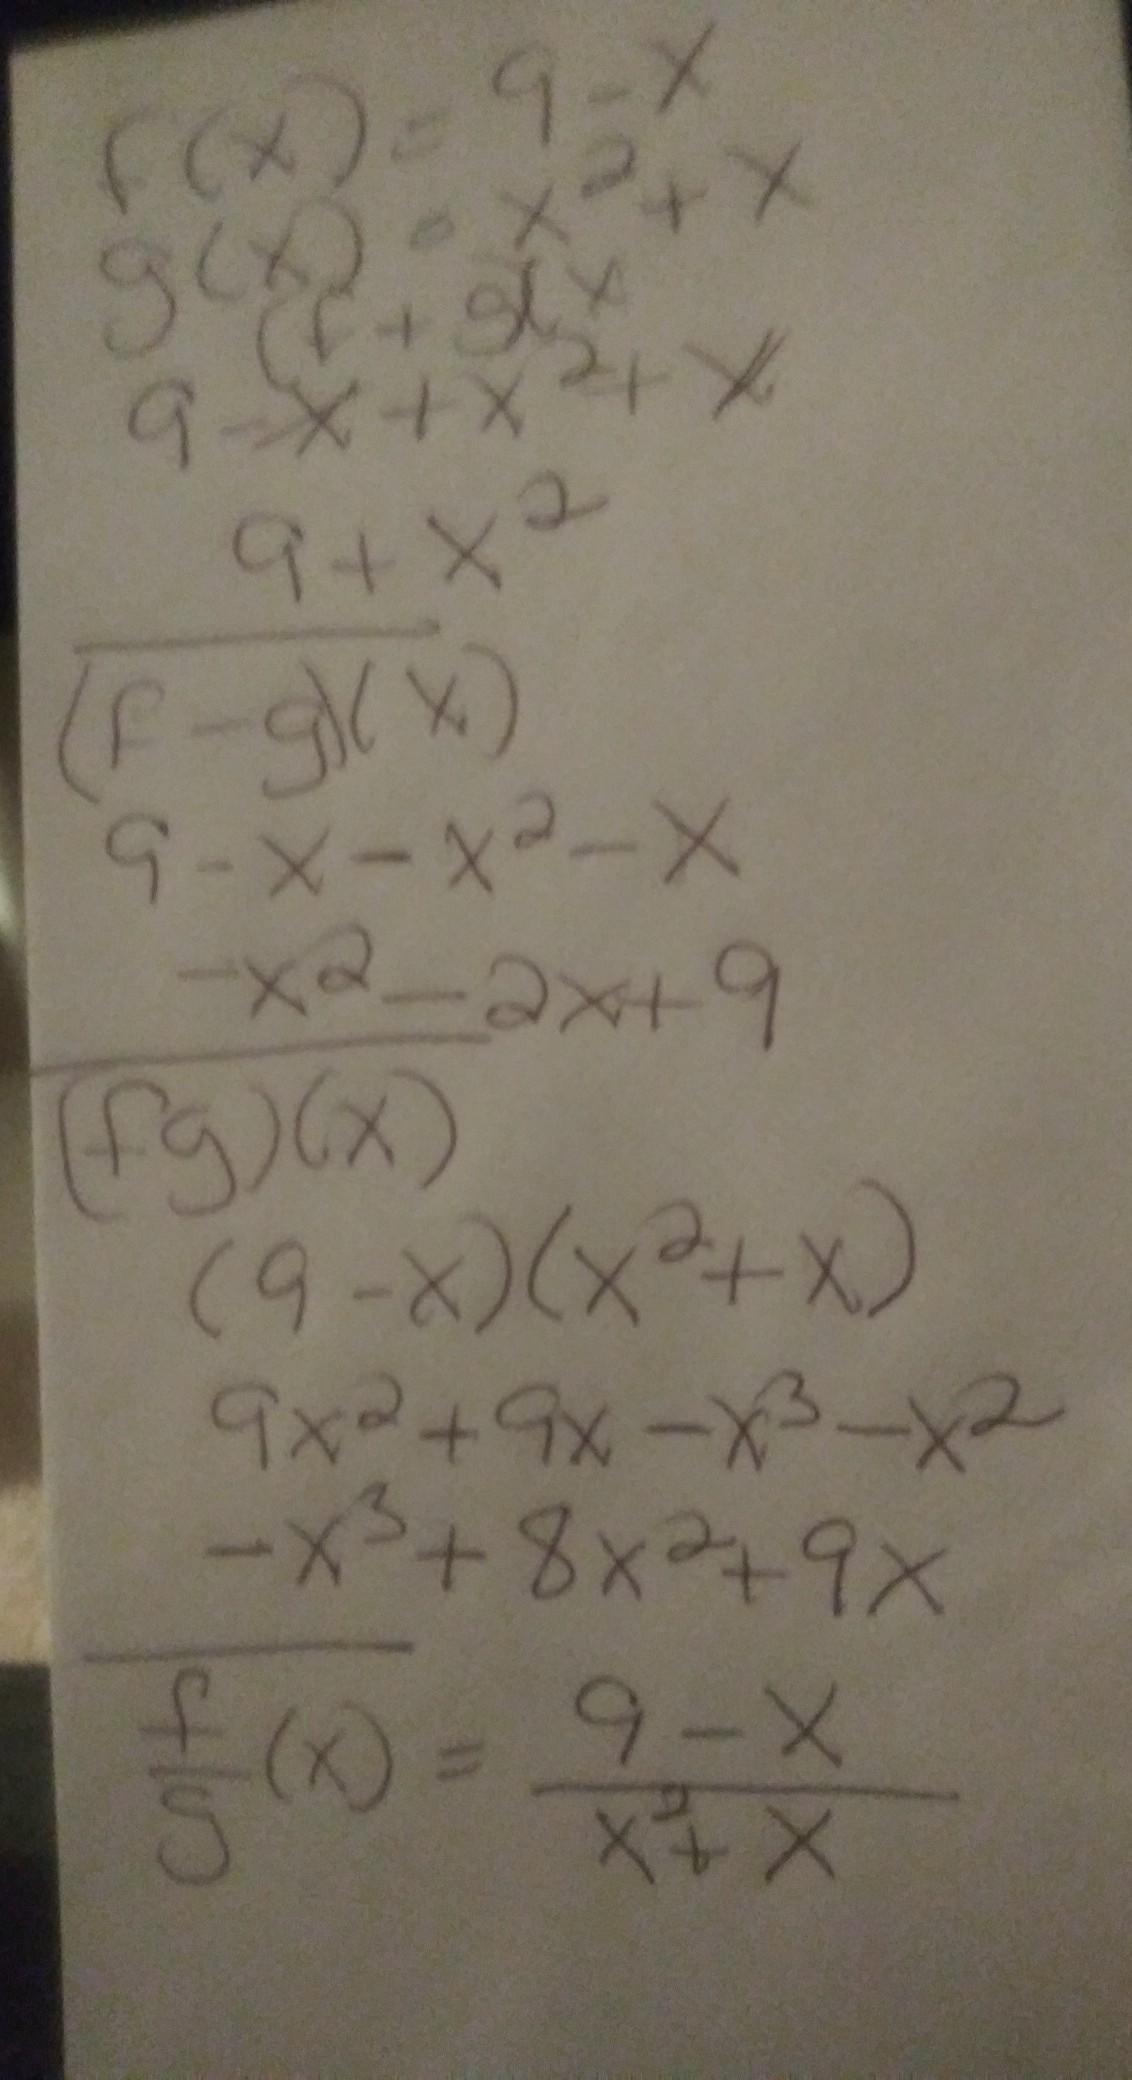 f(x) = 9 - x
g(x) = x² + x
(f + g)(x
9 - x + x² + x
9 + x²
(f - g)(x)
9 - x - x² - x
-x² - 2x + 9
(fg)(x)
(9 - x)(x² + x)
9x² + 9x - x³ - x²
-x³ + 8x² + 9x
f/g (x) = 9 - x / x² + x